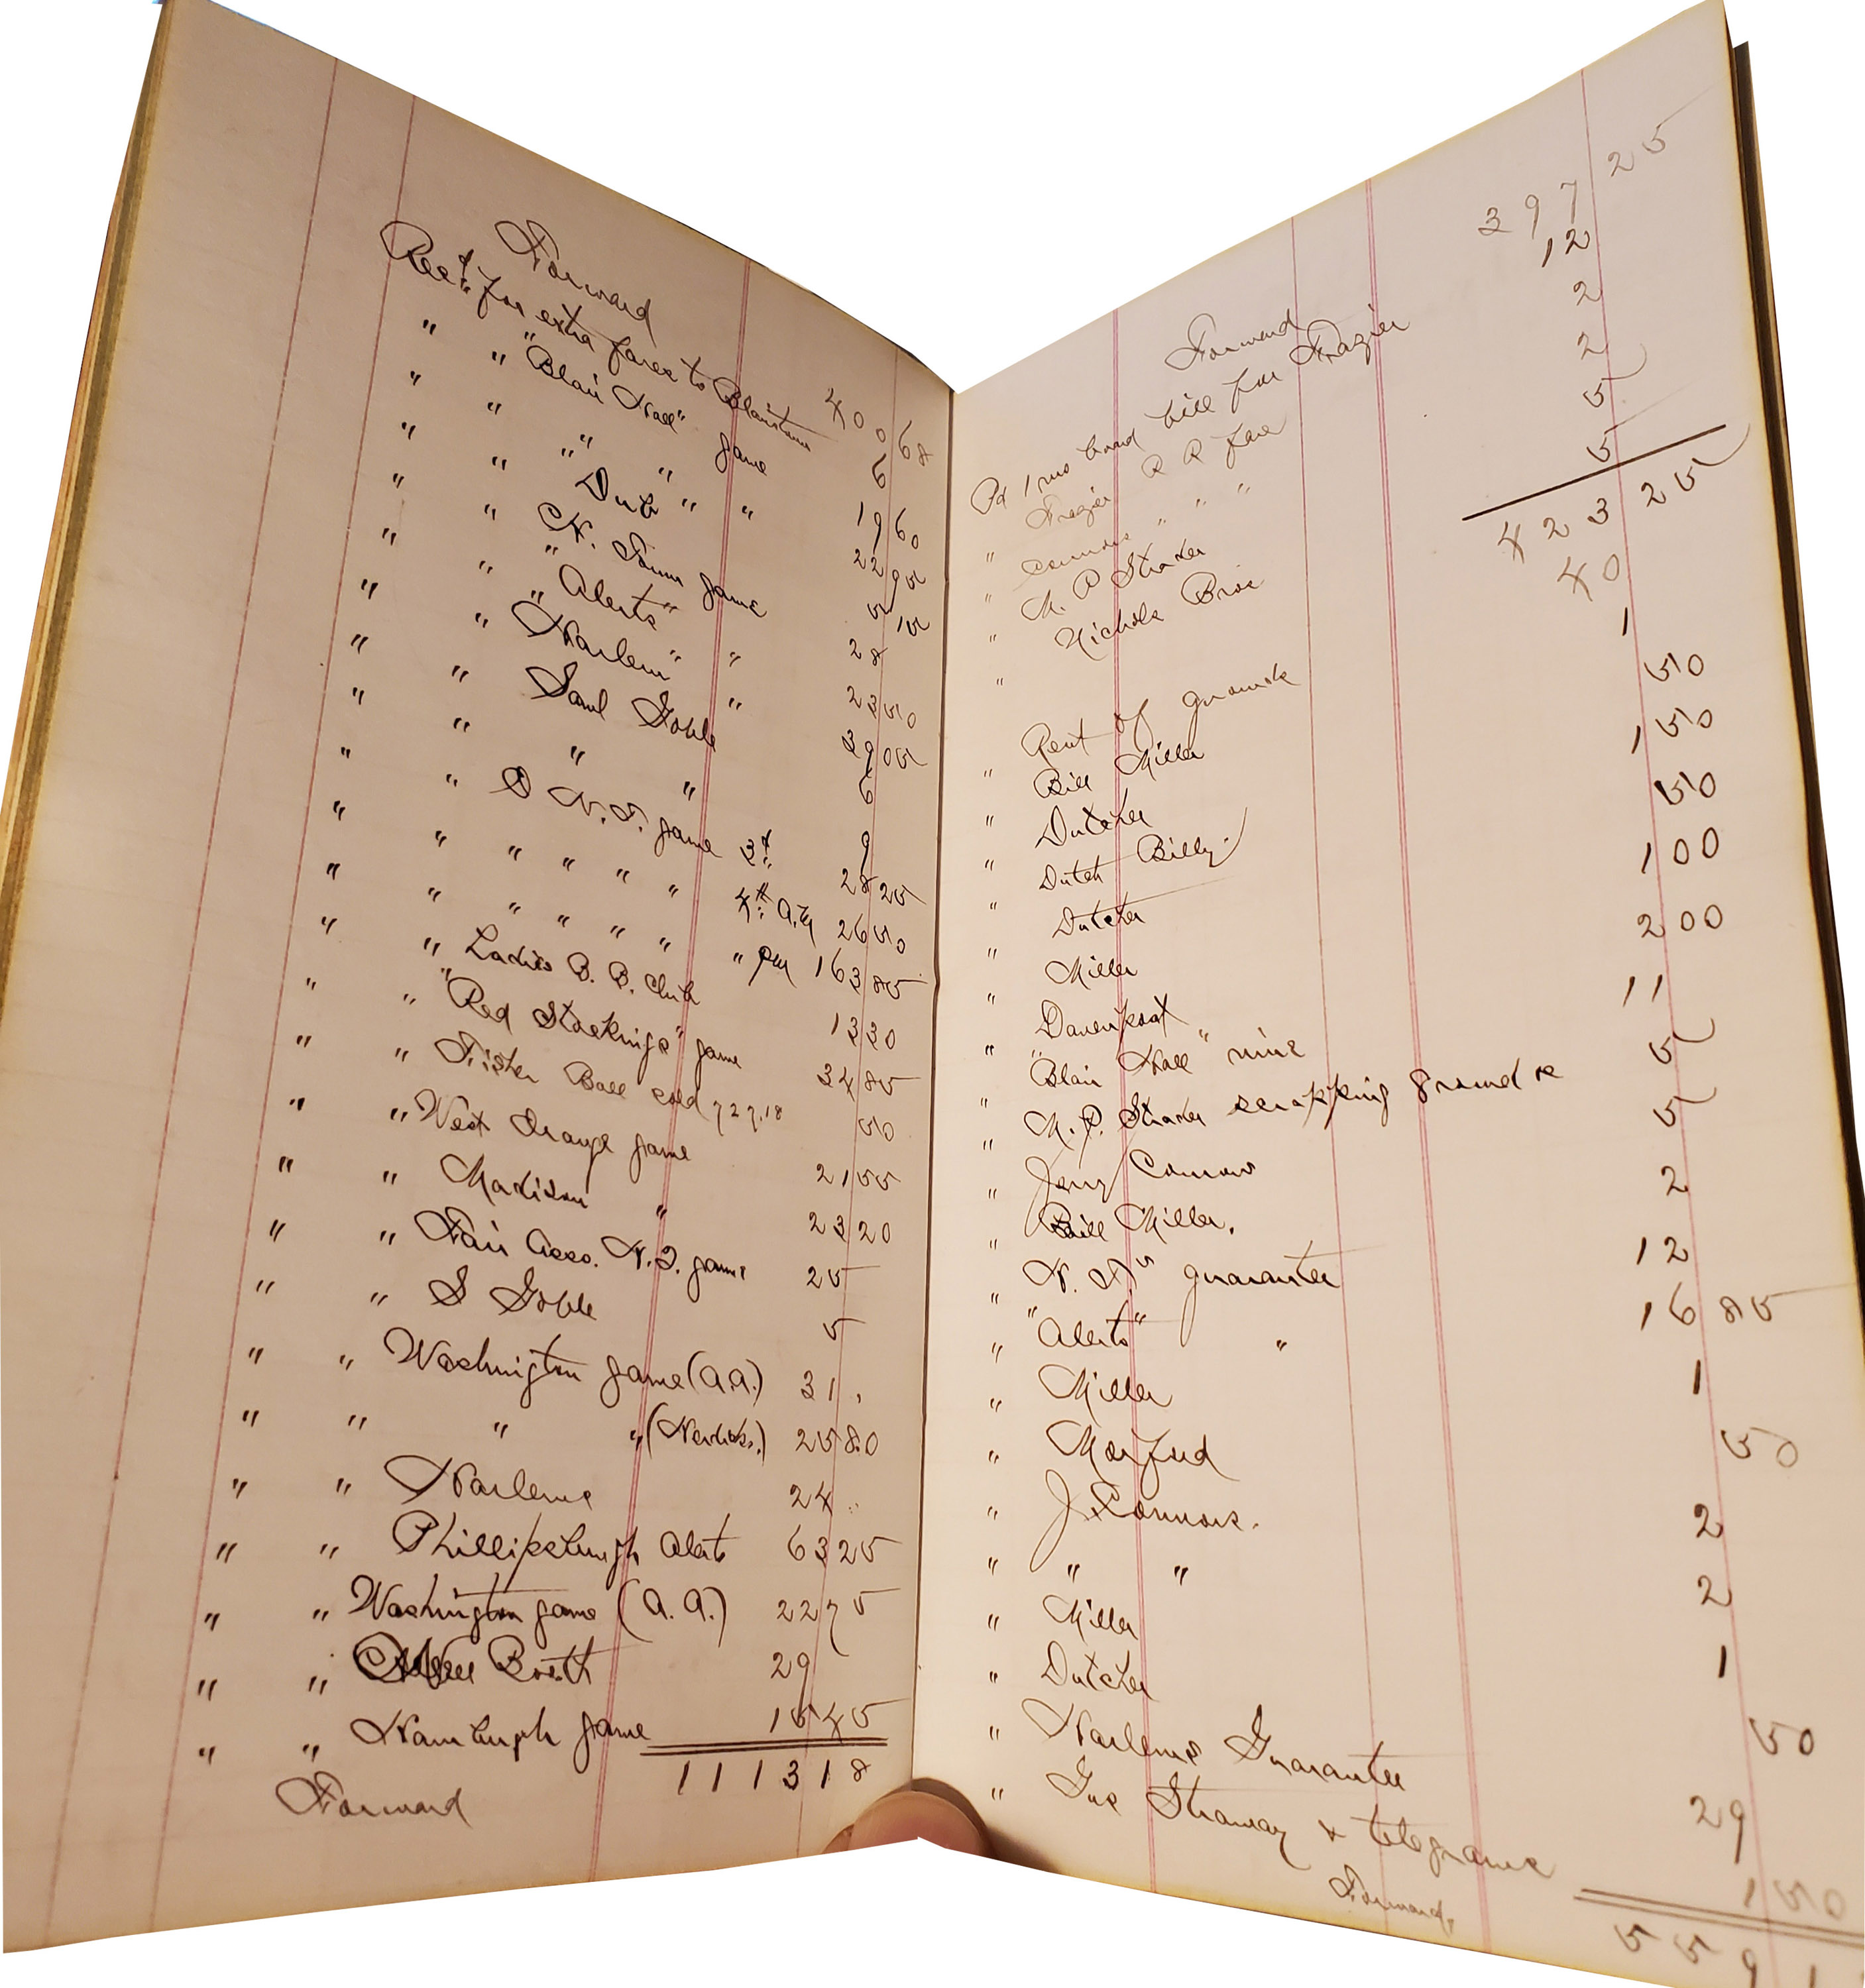 Forward 400 68
Rec'd for extra fares to Blairstown 6
" " "Blair Hall" game 19 60
" " " " " 22 95
" " Dub " " 5 15
" " game 28
" " "Alerts" " 23 50
" " "Harlem" " 39 05
" " Saml Goble 6
" " " " 9
" " game 3d 28 25
" " " " " " 4th A.M 26 50
" " " " " " " PM 163 85
" " Ladies B. B. Club 13 30
" " "Red Stockings" game 34 85
" " Ball sold 50
" " West Orange game 21 55
" " Madison " 23 20
" " Fair Asso. game 25
" " S Goble 5
" " Washington game (A.A.) 31
" " " " 25 80
" " Harlems 24
" " Phillipsburgh Alerts 63 25
" " Washington game (A. A.) 22 75
" " Booth 29
" " Hamburgh game 15 45
Forward 1113 18
Forward 397 25
Pd 1 mo board bill for Frazier 12
" Frazier R R Fare 2
" Connors " " " 2
" M. P Straker 5
" Nichols Bros 5
423 25
" Rent of grounds 40
" Bill Miller 1
" Dutcher 50
" Dutch Billy 1 50
" Dutcher 50
" Miller 1 00
" Davenport 2 00
" "Blair Hall" nine 11
" M. P. Straker scrapping grounds 5
" Jerry Connors 5
" Bill Miller. 2
" guarantee 12
" "Alerts" " 16 85
" Miller 1
" Morford 50
" J Connors. 2
" " " 2
" Miller 1
" Dutcher 50
" Harlems Guarantee 29
" Gus Straway & telegrams 1 50
Forward, 559 1